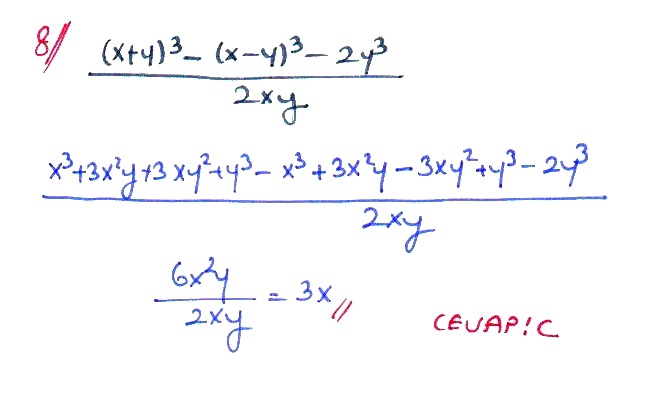 8// (x+y)³ - (x-y)³ - 2y³
2xy
x³+3x²y+3xy²+y³- x³+3x²y-3xy²+y³-2y³
2xy
6x²y
2xy
= 3x //
CEVAP: C